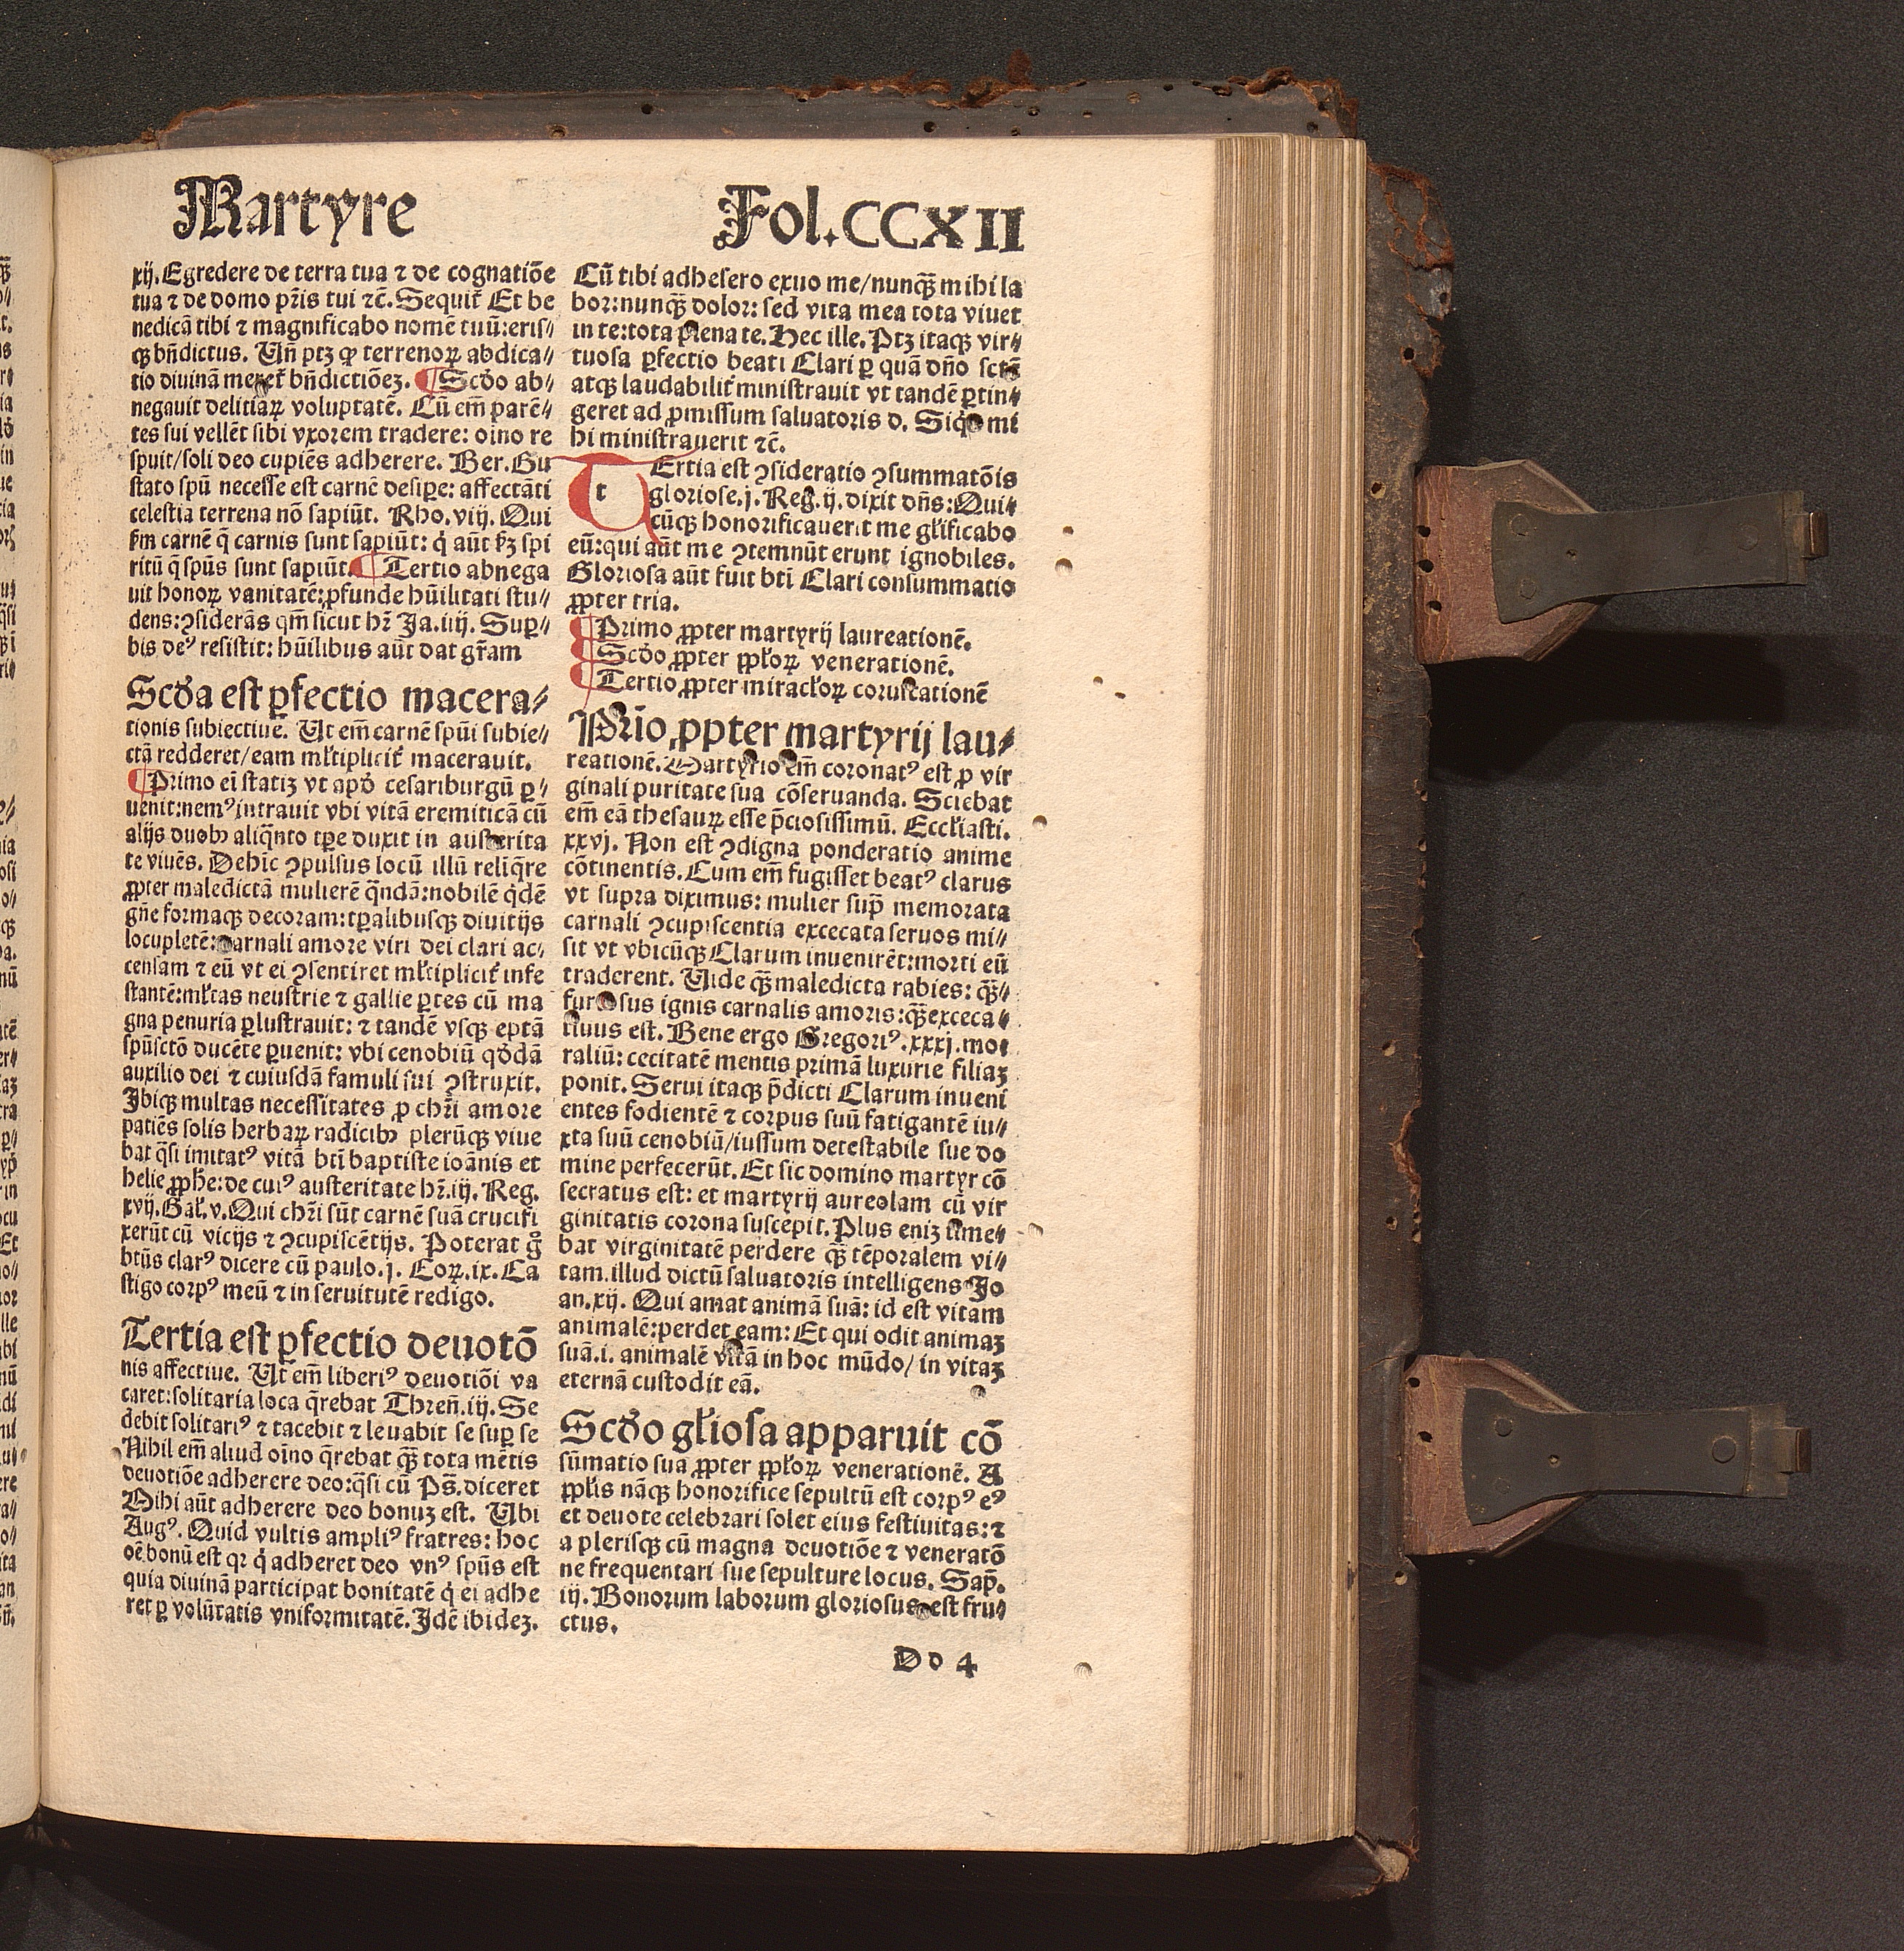 Martyre
Fol.CCXII
xij. Egredere de terra tua ⁊ de cognatiõe
tua ⁊ de domo pr̃is tui ⁊c̃. Sequit̃ Et be
nedicã tibi ⁊ magnificabo nomẽ tuũ:eris//
qꝫ bñdictus. Uñ ptꝫ ꝙ terrenoꝝ abdica//
tio diuinã meret̃ bñdictiõeꝫ. ¶ Scďo ab//
negauit delitiaꝝ voluptatẽ. Cũ em̃ parẽ//
tes sui vellẽt sibi vxorem tradere: oino re
spuit/soli deo cupiẽs adherere. Ber. Gu
stato spũ necesse est carnẽ desiꝑe: affectãti
celestia terrena nõ sapiũt. Rho. viij. Qui
ẜm carnẽ q̃ carnis sunt sapiũt: q̇ aũt ẜꝫ spi
ritũ q̃ spũs sunt sapiũt. ¶ Tertio abnega
uit honoꝝ vanitatẽ:ꝓfunde hũilitati stu//
dens:ꝯsiderãs qm̃ sicut hr̃ Ja.iiij. Suꝑ//
bis deꝰ resistit: hũilibus aũt dat gr̃am
Scďa est ꝑfectio macera//
tionis subiectiue. Ut em̃ carnẽ spũi subie//
ctã redderet/eam mĺtiplicit̃ macerauit.
¶ Primo ei statiꝫ vt apď cesariburgũ ꝑ//
uenit:nemꝰ intrauit vbi vitã eremiticã cũ
alijs duobꝫ aliq̃nto tꝑe duxit in austerita
te viuẽs. Dehĩc ꝯpulsus locũ illũ reliq̃re
ꝓpter maledictã mulierẽ q̃ndã:nobilẽ q̇dẽ
gñe formaqꝫ decoram:tꝑalibusqꝫ diuitijs
locupletẽ: carnali amore viri dei clari ac//
censam ⁊ eũ vt ei ꝯsentiret mĺtiplicit̃ infe
stantẽ:mĺtas neustrie ⁊ gallie ꝑtes cũ ma
gna penuria ꝑlustrauit: ⁊ tandẽ vsqꝫ eptã
spũsctõ ducẽte ꝑuenit: vbi cenobiũ qďdã
auxilio dei ⁊ cuiusdã famuli sui ꝯstruxit.
Ibiqꝫ multas necessitates ꝓ chr̃i amore
patiẽs solis herbaꝝ radicibꝫ plerũqꝫ viue
bat q̃si imitatꝰ vitã bti̇̃ baptiste ioãnis et
helie ꝓphe:de cuiꝰ austeritate hr̃.iij. Reg.
xvij. Gaĺ.v. Qui chr̃i sũt carnẽ suã crucifi
xerũt cũ vicijs ⁊ ꝯcupiscẽtijs. Poterat g̊
btũs clarꝰ dicere cũ paulo.j. Coꝝ.ix. Ca
stigo corpꝰ meũ ⁊ in seruitutẽ redigo.
Tertia est ꝑfectio deuotõ
nis affectiue. Ut em̃ liberiꝰ deuotiõi va
caret:solitaria loca q̃rebat Thren̄.iij. Se
debit solitariꝰ ⁊ tacebit ⁊ leuabit se suꝑ se
Nihil em̃ aliud oĩno q̃rebat qꝫ̃ tota mẽtis
deuotiõe adherere deo:q̃si cũ Ps̃. diceret
Mihi aũt adherere deo bonuꝫ est. Ubi
Augꝰ. Quid vultis ampliꝰ fratres: hoc
oẽ bonũ est qꝛ q̇ adheret deo vnꝰ spũs est
quia diuinã participat bonitatẽ q̇ ei adhe
ret ꝑ volũtatis vniformitatẽ. Idẽ ibideꝫ.
Cũ tibi adhesero exuo me/nunqꝫ̃ mihi la
bor:nunqꝫ̃ dolor: sed vita mea tota viuet
in te:tota plena te. Hec ille. Ptꝫ itaqꝫ vir//
tuosa ꝑfectio beati Clari ꝑ quã dño sctẽ
atqꝫ laudabilit̃ ministrauit vt tandẽ ꝑtin//
geret ad ꝓmissum saluatoris d. Siq̇s mi
hi ministrauerit ⁊c̃.
tErtia est ꝯsideratio ꝯsummatõis
gloriose.j. Reg.ij. dixit dñs: Qui//
cũqꝫ honorificauerit me gĺificabo
eũ:qui aũt me ꝯtemnũt erunt ignobiles.
Gloriosa aũt fuit bti̇̃ Clari consummatio
ꝓpter tria.
¶ Primo ꝓpter martyrij laureationẽ.
¶ Scďo ꝓpter ppĺoꝝ venerationẽ.
¶ Tertio ꝓpter miracĺoꝝ coruscationẽ
Pri̇̃o ꝓpter martyrij lau//
reationẽ. Martyrio em̃ coronatꝰ est ꝓ vir
ginali puritate sua cõseruanda. Sciebat
em̃ eã thesauꝝ esse p̃ciosissimũ. Eccĺiasti.
xxvj. Non est ꝯdigna ponderatio anime
cõtinentis. Cum em̃ fugisset beatꝰ clarus
vt supra diximus: mulier sup̃ memorata
carnali ꝯcupiscentia excecata seruos mi//
sit vt vbicũqꝫ Clarum inuenirẽt:morti eũ
traderent. Uide qꝫ̃ maledicta rabies: qꝫ̃//
furiosus ignis carnalis amoris:qꝫ̃ exceca//
tiuus est. Bene ergo Gregoriꝰ.xxxj.mo//
raliũ: cecitatẽ mentis primã luxurie filiaꝫ
ponit. Serui itaqꝫ p̃dicti Clarum inueni
entes fodientẽ ⁊ corpus suũ fatigantẽ iu//
xta suũ cenobiũ/iussum detestabile sue do
mine perfecerũt. Et sic domino martyr cõ
secratus est: et martyrij aureolam cũ vir
ginitatis corona suscepit. Plus eniꝫ time//
bat virginitatẽ perdere qꝫ̃ tẽporalem vi//
tam.illud dictũ saluatoris intelligens Jo
an.xij. Qui amat animã suã: id est vitam
animalẽ:perdet eam: Et qui odit animaꝫ
suã.i. animalẽ vitã in hoc mũdo/ in vitaꝫ
eternã custodit eã.
Scďo gĺiosa apparuit cõ
sũmatio sua ꝓpter ppĺoꝝ venerationẽ. A
ppĺis nãqꝫ honorifice sepultũ est corpꝰ eꝰ
et deuote celebrari solet eius festiuitas: ⁊
a plerisqꝫ cũ magna deuotiõe ⁊ veneratõ
ne frequentari sue sepulture locus. Sap̃.
iij. Bonorum laborum gloriosus est fru//
ctus.
Dd 4